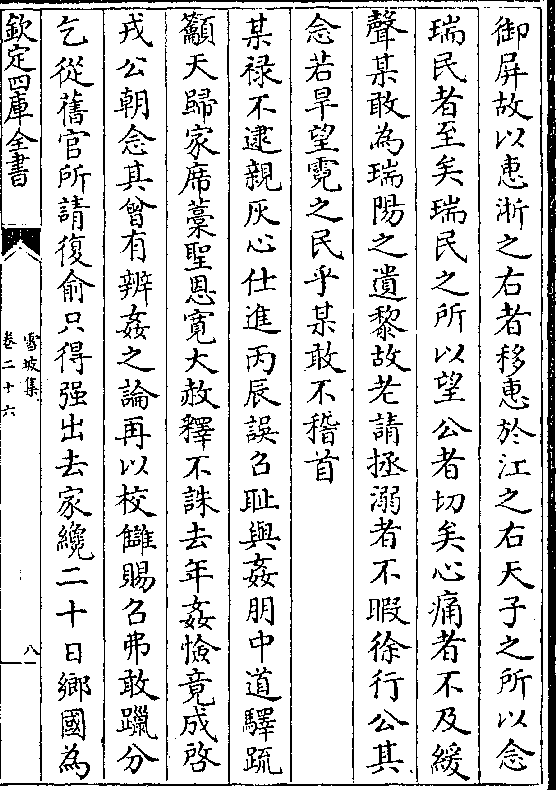 御屏故以惠浙之右者移惠於江之右天子之所以念
瑞民者至矣瑞民之所以望公者切矣心痛者不及緩
聲某敢為瑞陽之遺黎故老請拯溺者不暇徐行公其
念若旱望霓之民乎某敢不稽首
某禄不逮親灰心仕進丙辰誤召耻與姦朋中道驛疏
籲天歸家席藁聖恩寛大赦釋不誅去年姦憸竟成啓
戎公朝念其曾有辨姦之論再以校讎賜召弗敢躐分
乞從舊官所請復俞只得强出去家纔二十日鄉國為
欽定四庫全書
雪坡集
卷二十六
八